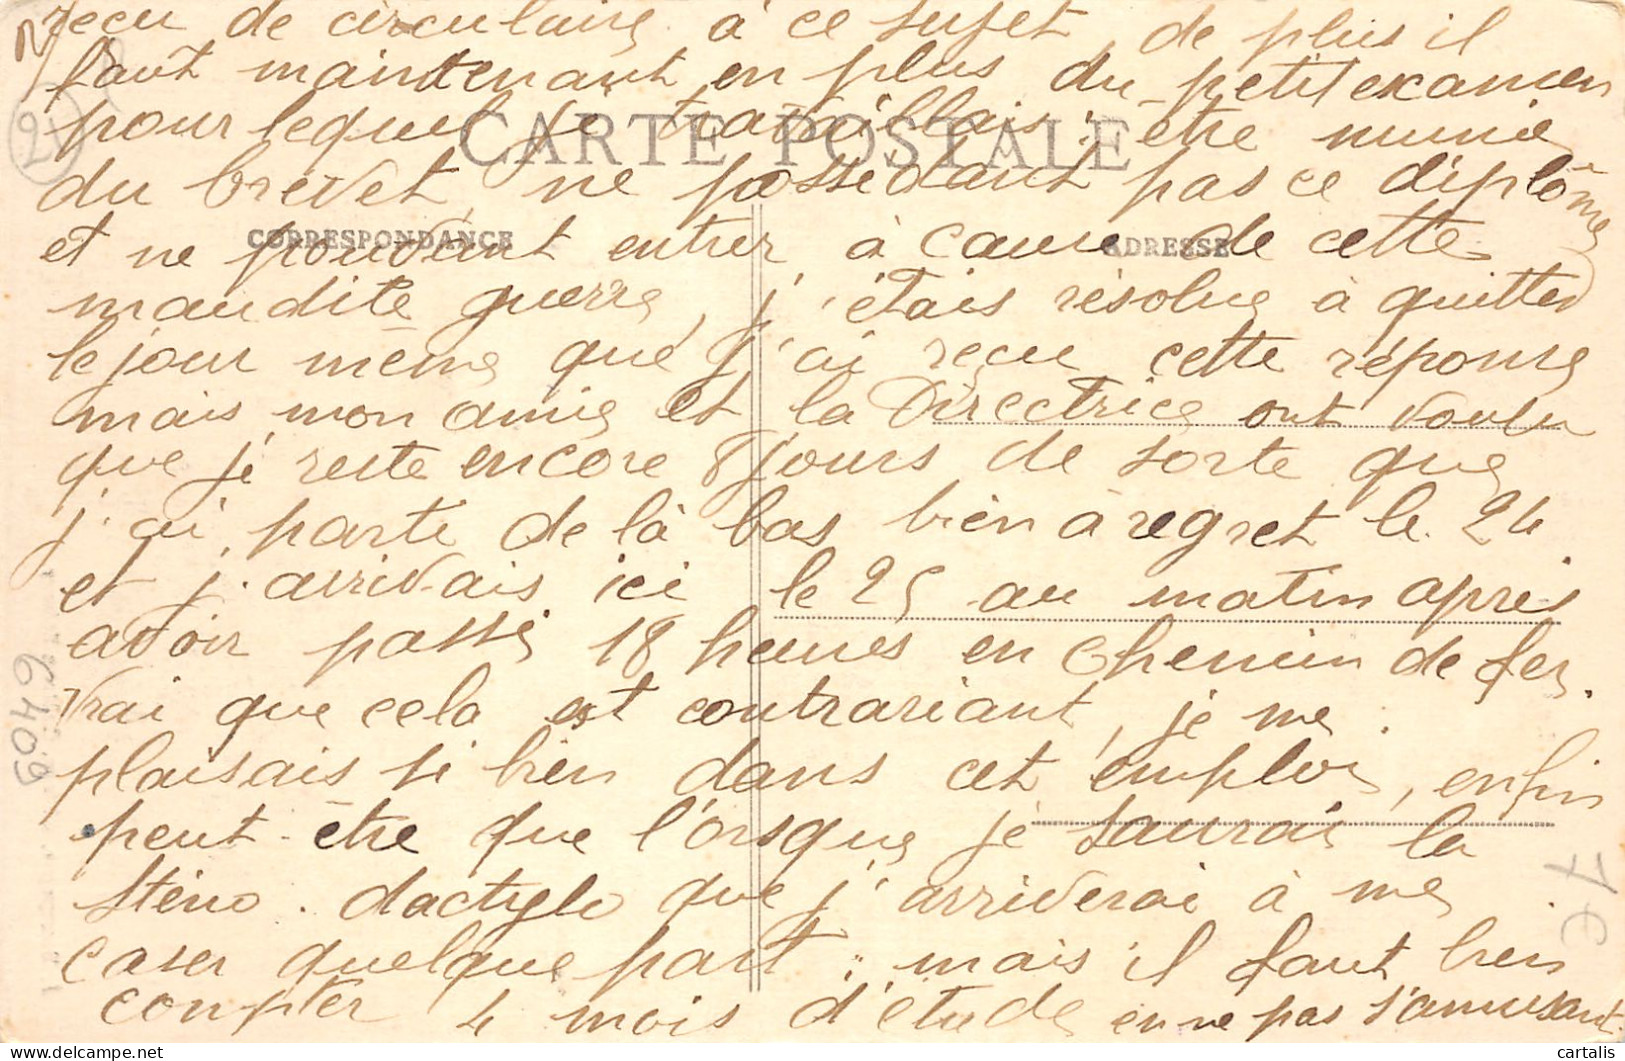 reçu de circulaire à ce sujet, de plus il
faut maintenant en plus du petit examen
pour lequel je travaillais : être munie
CARTE POSTALE
du brevet, ne possédant pas ce diplôme
et ne pouvant entrer à cause de cette
CORRESPONDANCE
ADRESSE
maudite guerre, j'étais résolue à quitter
le jour même que j'ai reçu cette réponse
mais mon amie et la Directrice ont voulu
que je reste encore 8 jours de sorte que
j'ai parti de là bas bien à regret le 24
et j'arrivais ici le 25 au matin après
avoir passé 18 heures en chemin de fer.
Vrai que cela est contrariant, je me
plaisais si bien dans cet emploi, enfin
peut-être que l'orsque je saurai la
sténo. dactylo que j'arriverai à me
caser quelque part ; mais il faut bien
compter 4 mois d'étude en ne pas s'amusant.
N7
27
6409
7€
cartalis